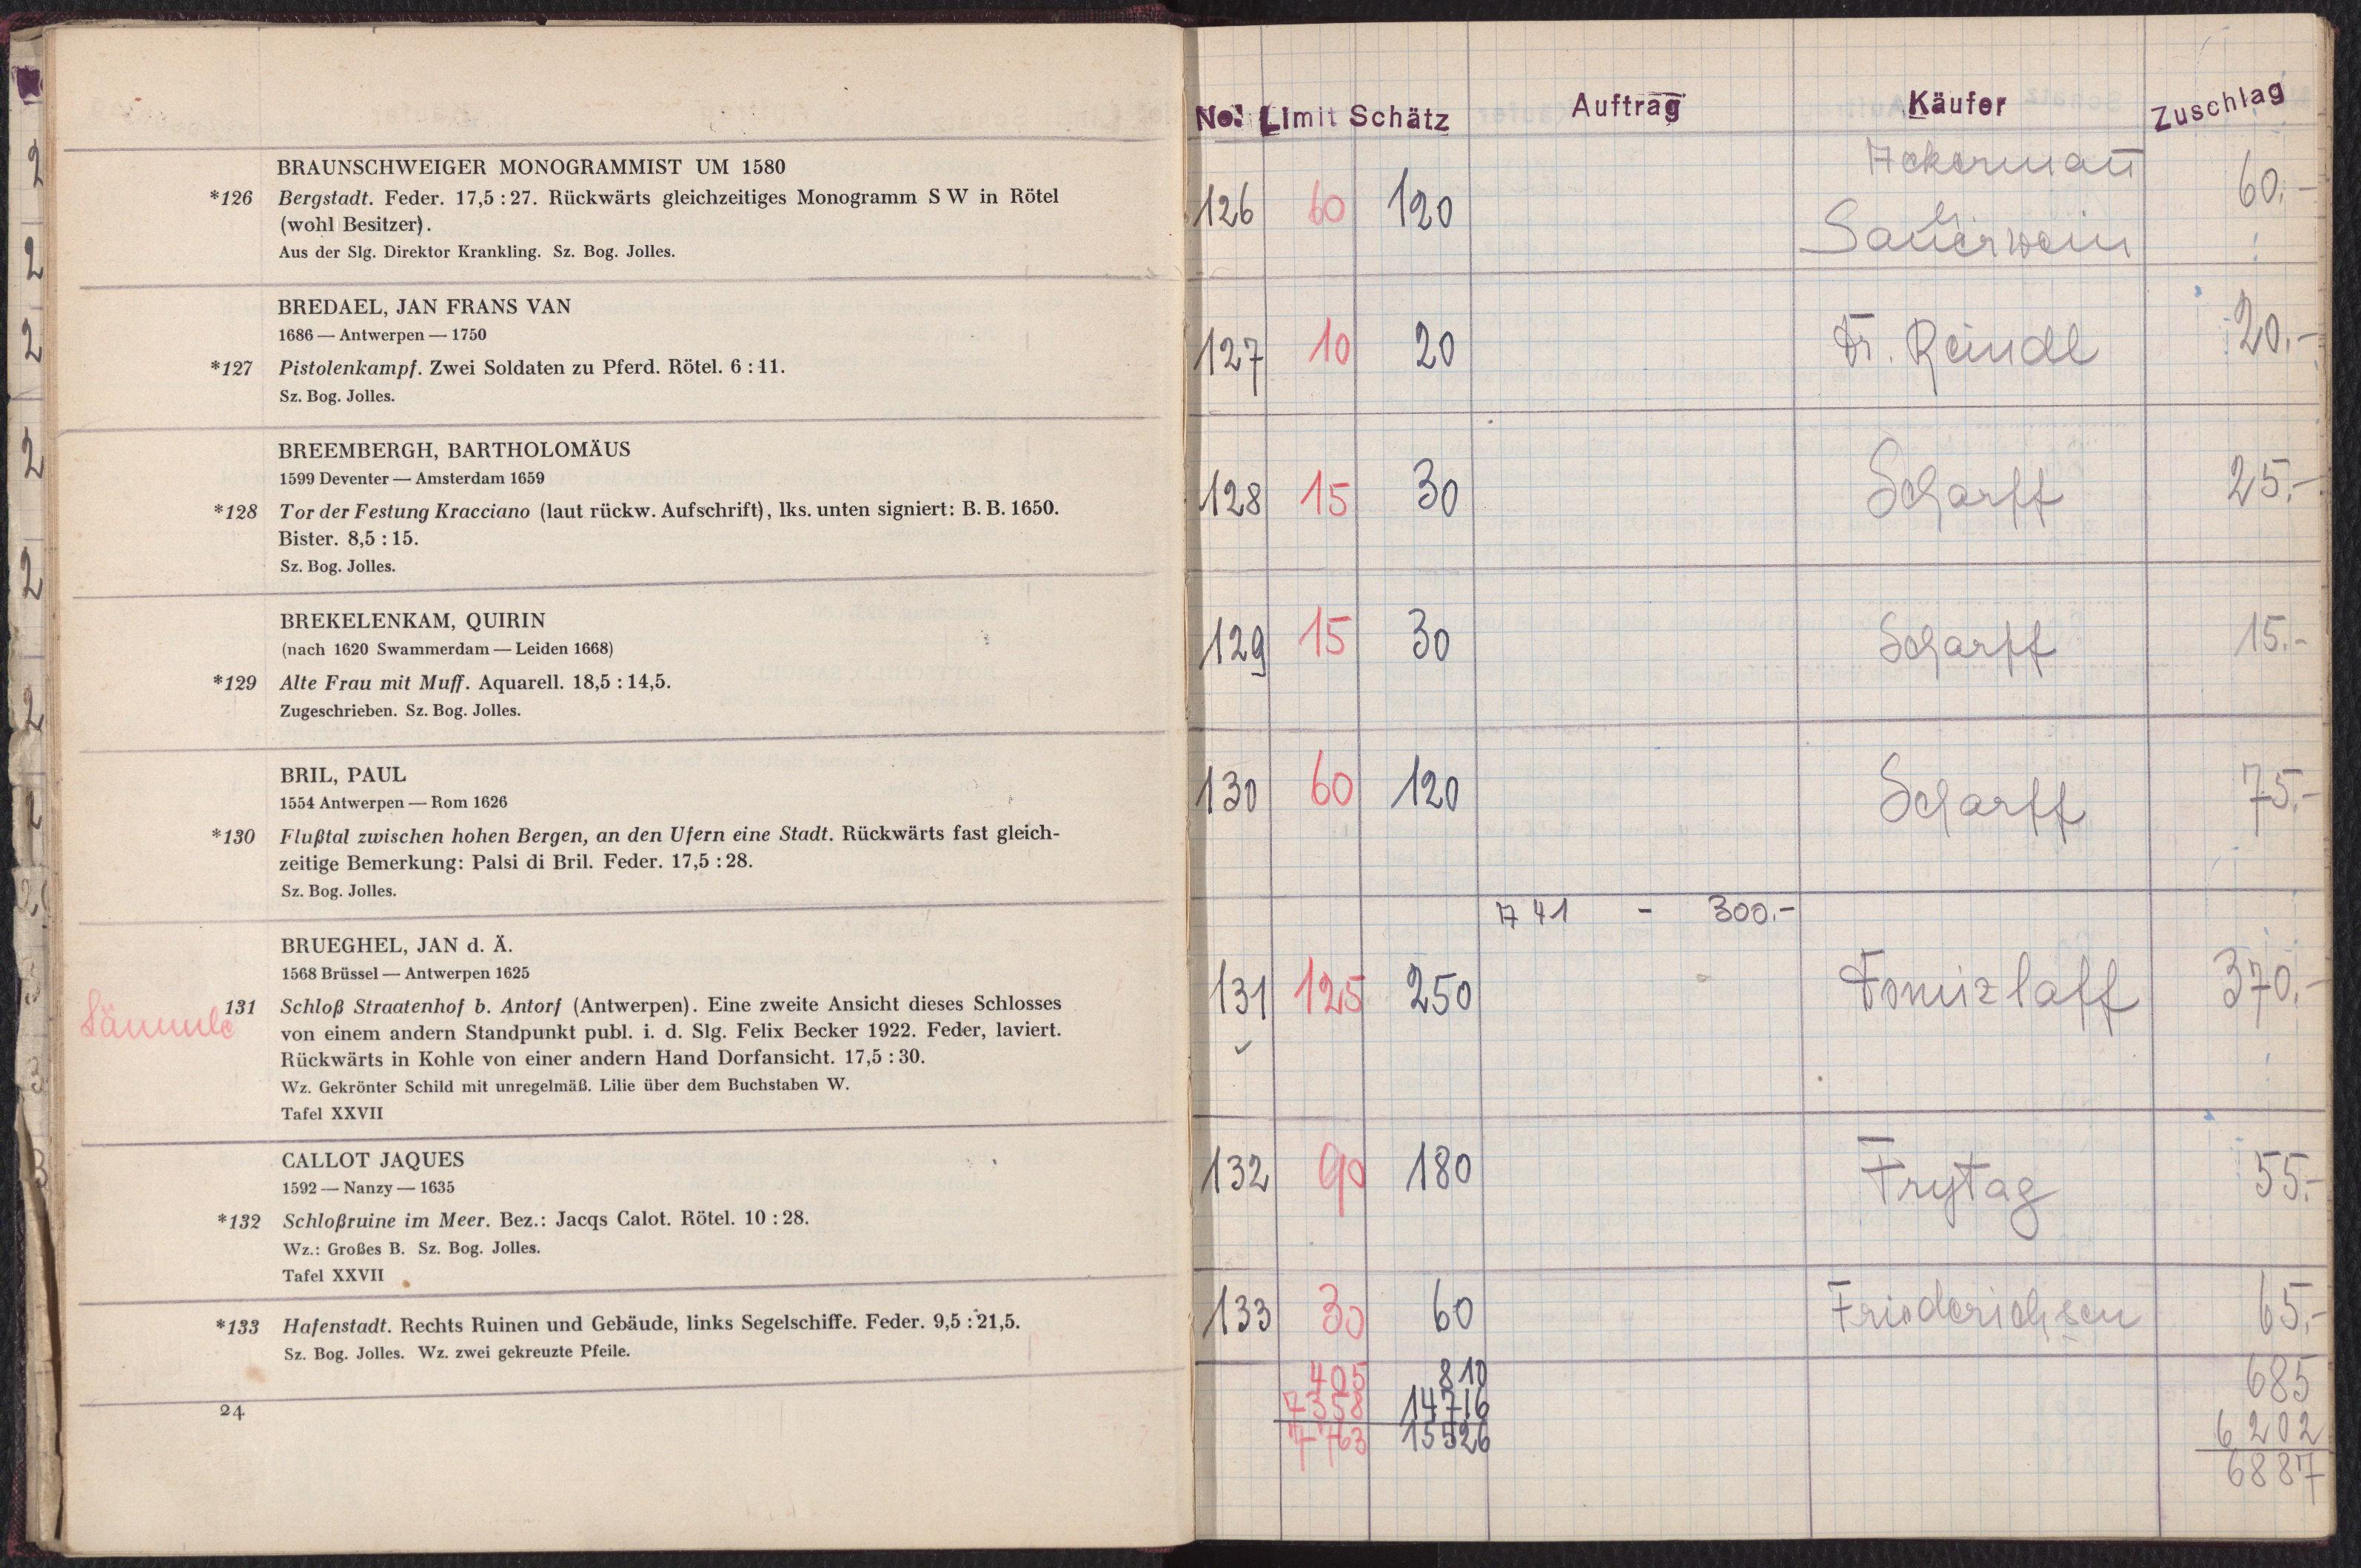 BRAUNSCHWEIGER MONOGRAMMIST UM 1580
*126 Bergstadt. Feder. 17,5 : 27. Rückwärts gleichzeitiges Monogramm S W in Rötel
(wohl Besitzer).
Aus der Slg. Direktor Krankling. Sz. Bog. Jolles.
BREDAEL, JAN FRANS VAN
1686 — Antwerpen — 1750
*127 Pistolenkampf. Zwei Soldaten zu Pferd. Rötel. 6 : 11.
Sz. Bog. Jolles.
BREEMBERGH, BARTHOLOMÄUS
1599 Deventer — Amsterdam 1659
*128 Tor der Festung Kracciano (laut rückw. Aufschrift), lks. unten signiert: B. B. 1650.
Bister. 8,5 : 15.
Sz. Bog. Jolles.
BREKELENKAM, QUIRIN
(nach 1620 Swammerdam — Leiden 1668)
*129 Alte Frau mit Muff. Aquarell. 18,5 : 14,5.
Zugeschrieben. Sz. Bog. Jolles.
BRIL, PAUL
1554 Antwerpen — Rom 1626
*130 Flußtal zwischen hohen Bergen, an den Ufern eine Stadt. Rückwärts fast gleich-
zeitige Bemerkung: Palsi di Bril. Feder. 17,5 : 28.
Sz. Bog. Jolles.
BRUEGHEL, JAN d. Ä.
1568 Brüssel — Antwerpen 1625
131 Schloß Straatenhof b. Antorf (Antwerpen). Eine zweite Ansicht dieses Schlosses
von einem andern Standpunkt publ. i. d. Slg. Felix Becker 1922. Feder, laviert.
Rückwärts in Kohle von einer andern Hand Dorfansicht. 17,5 : 30.
Wz. Gekrönter Schild mit unregelmäß. Lilie über dem Buchstaben W.
Tafel XXVII
CALLOT JAQUES
1592 — Nanzy — 1635
*132 Schloßruine im Meer. Bez.: Jacqs Calot. Rötel. 10 : 28.
Wz.: Großes B. Sz. Bog. Jolles.
Tafel XXVII
*133 Hafenstadt. Rechts Ruinen und Gebäude, links Segelschiffe. Feder. 9,5 : 21,5.
Sz. Bog. Jolles. Wz. zwei gekreuzte Pfeile.
24
No. Limit Schätz Auftrag Käufer Zuschlag
Ackermañ
126 60 120 60.-
Sauerwein
127 10 20 Dr. Reindl 20.-
128 15 30 Scharff 25.-
129 15 30 Scharff 15.-
130 60 120 Scharff 75.-
A 41 - 300.-
131 125 250 370.-
132 90 180 Frytag 55.-
133 30 60 Friederichsen 65.-
405 810 685
7358 14716 6202
7763 15526 6887